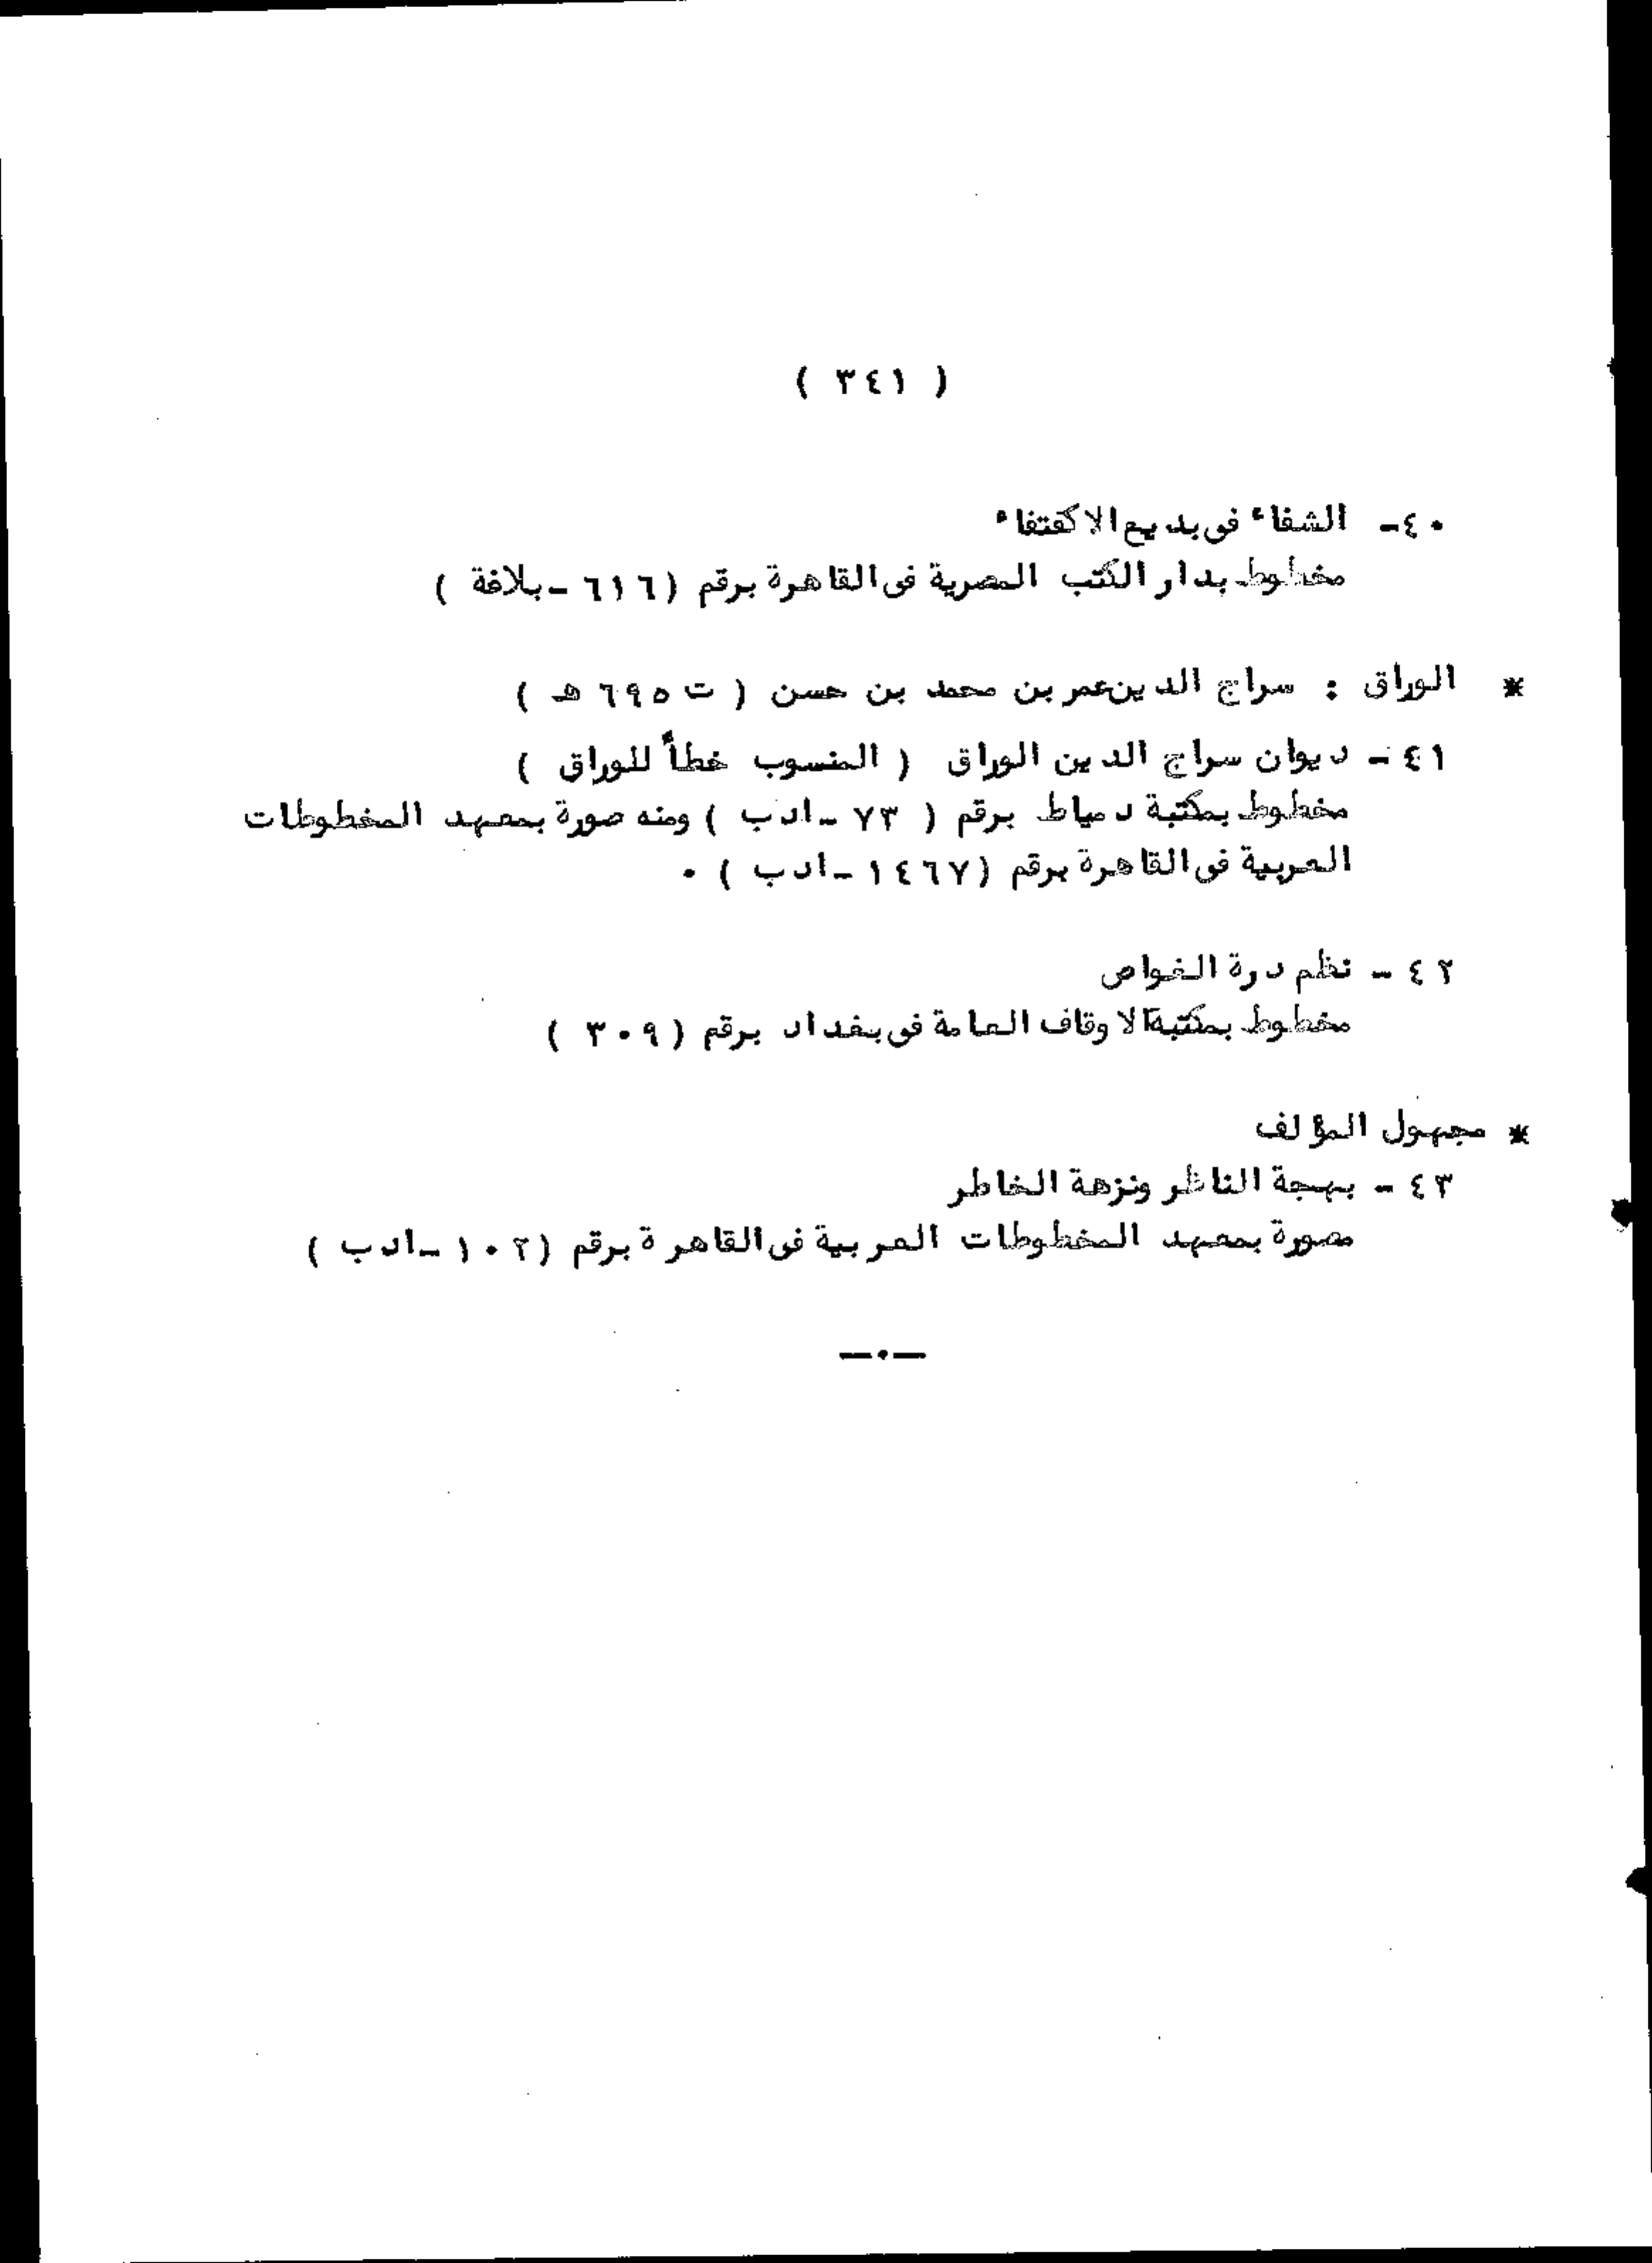 ( ٣٤١ )
٤٠- الشفاء فى بديع الاكتفاء
مخطوط بدار الكتب المصرية فى القاهرة برقم (٦١٦ - بلاغة )
* الوراق : سراج الدين عمر بن محمد بن حسن ( ت ٦٩٥ هـ )
٤١ - ديوان سراج الدين الوراق ( المنسوب خطأً للوراق )
مخطوط بمكتبة دمياط برقم ( ٧٣ - ادب ) ومنه صورة بمعهد المخطوطات
العربية فى القاهرة برقم (١٤٦٧ - ادب ) .
٤٢ - نظم درة الغواص
مخطوط بمكتبة الاوقاف العامة فى بغداد برقم (٣٠٩ )
* مجهول المؤلف
٤٣ - بهجة الناظر ونزهة الخاطر
مصورة بمعهد المخطوطات العربية فى القاهرة برقم (١٠٢ - ادب )
—٠—